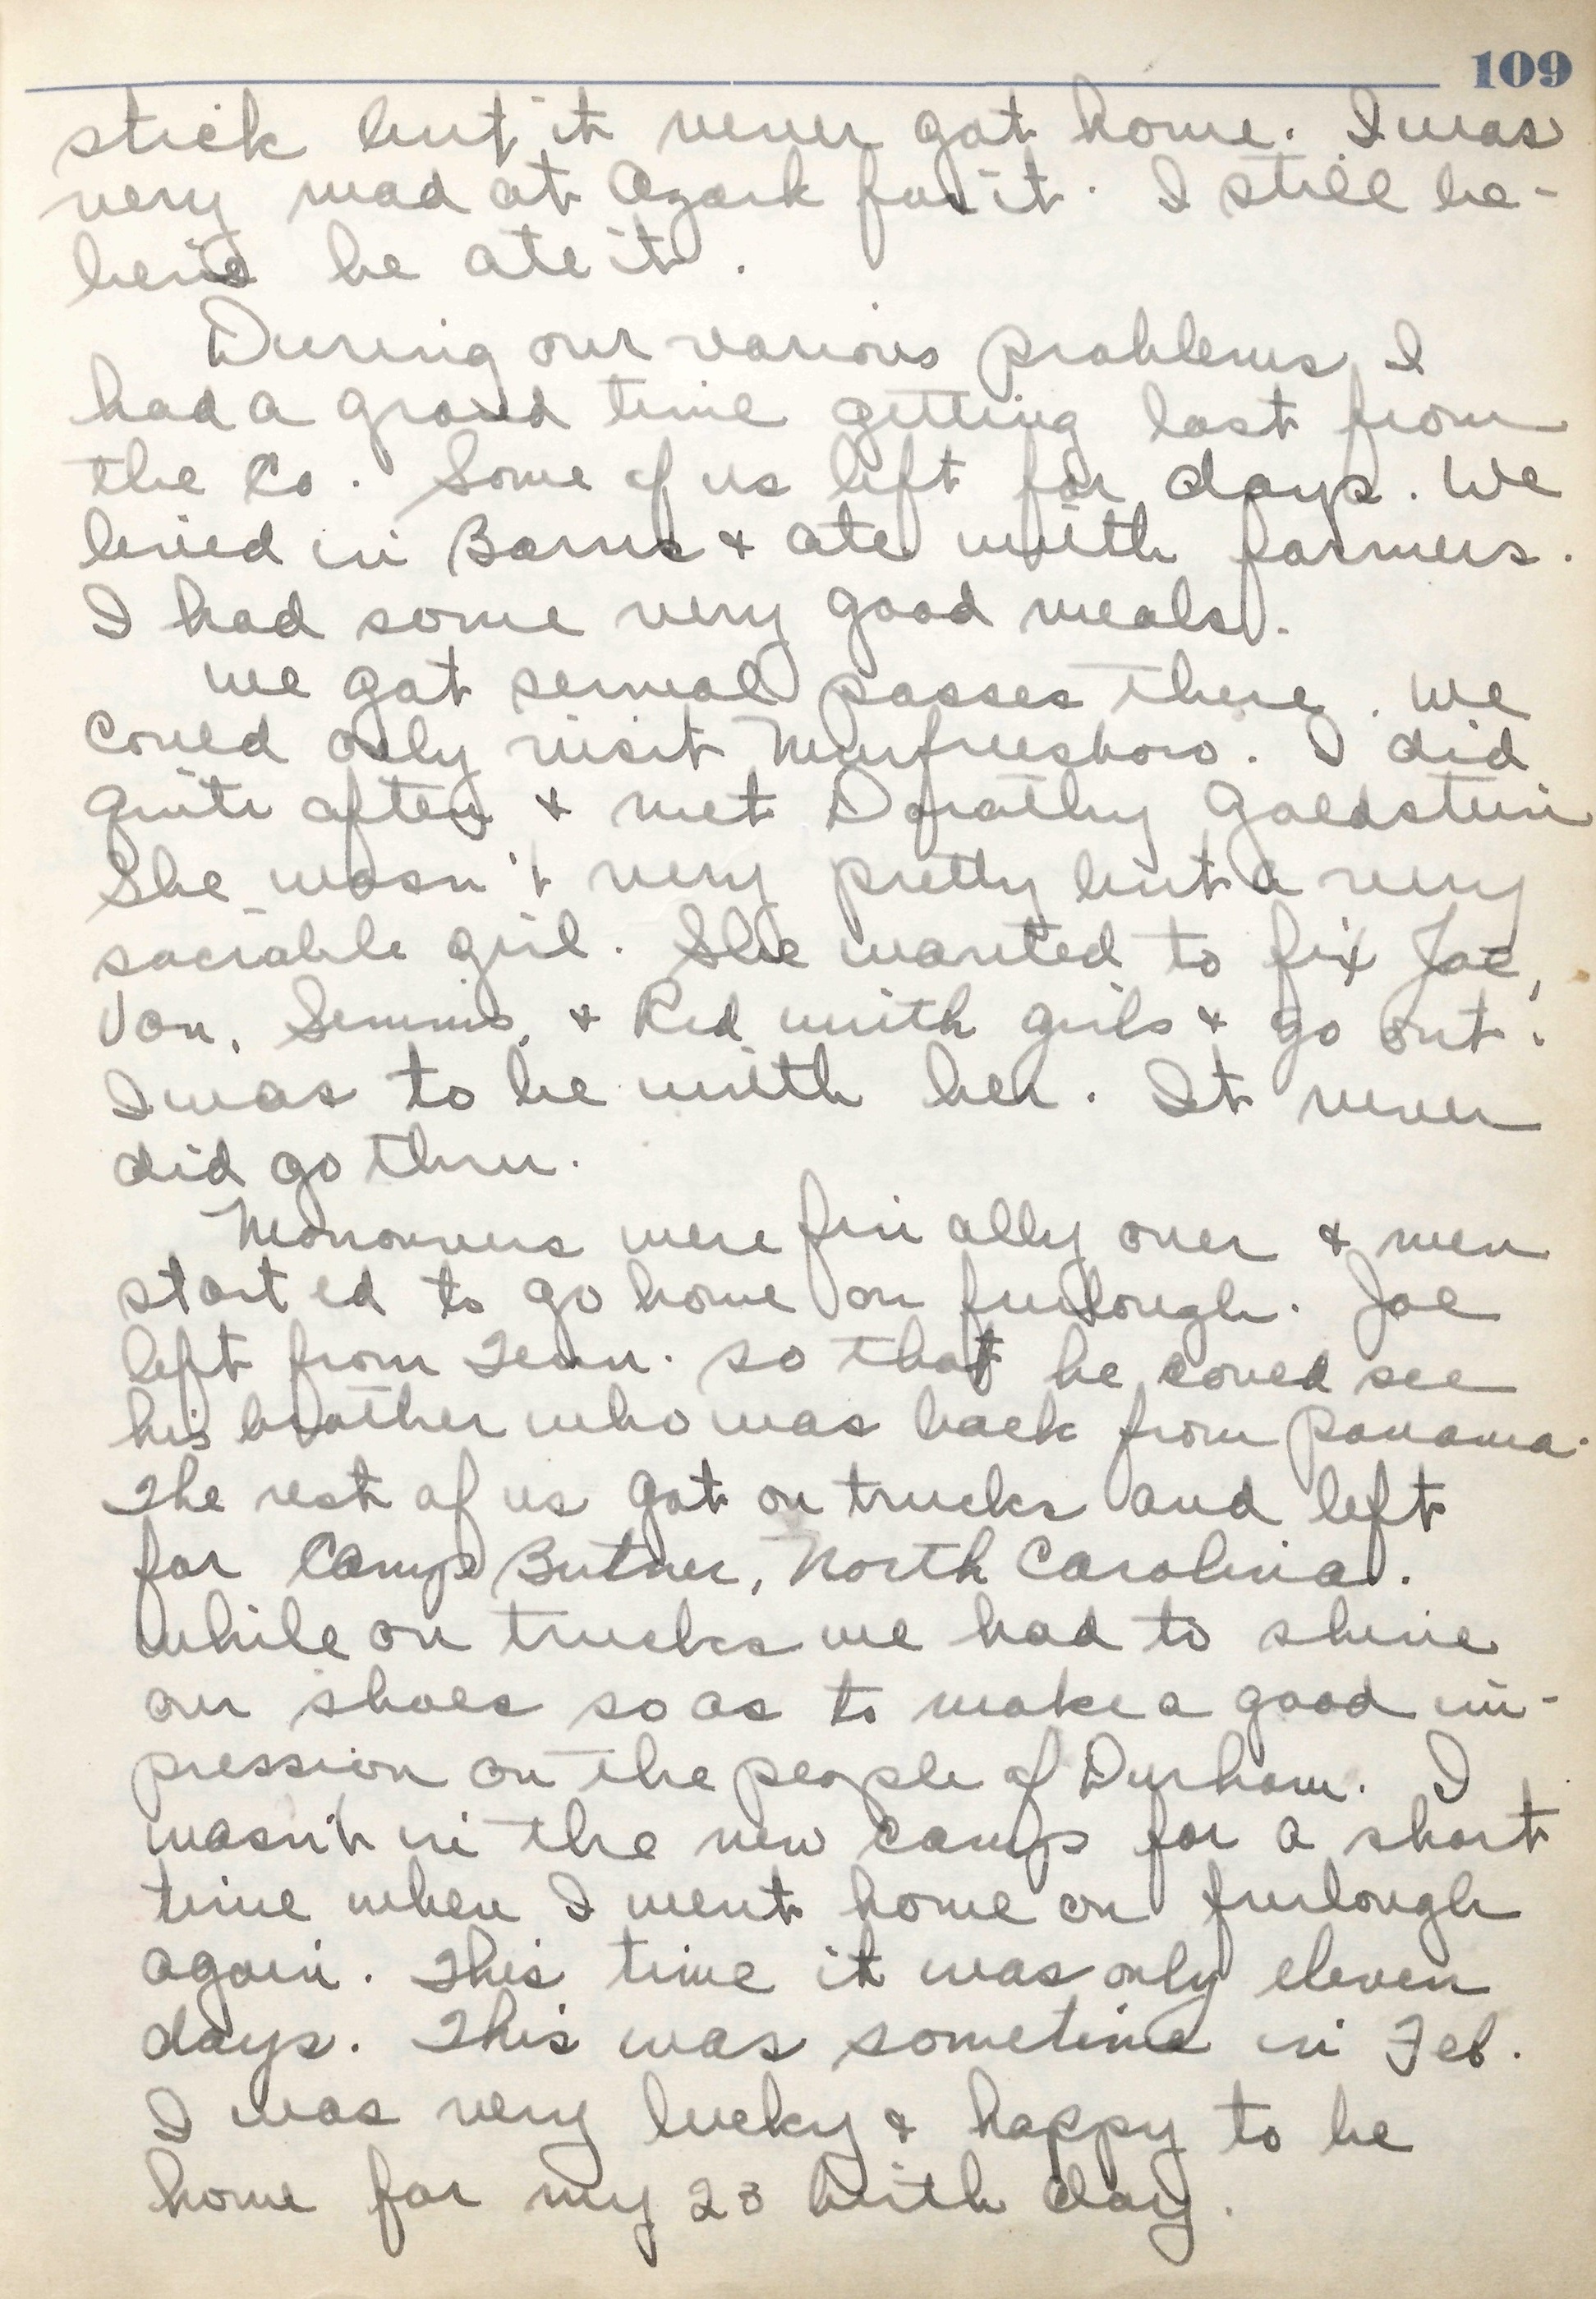 109
stick but it never got home. I was
very mad at Ozark for it. I still be-
leive he ate it.
During our various problems I
had a grand time getting lost from
the Co. Some of us left for days. We
lived in Barns & ate with farmers.
I had some very good meals.
We got several passes there. We
could only visit Murfreesboro. I did
quite often & met Dorothy Goldstein
She wasn't very pretty but a very
sociable girl. She wanted to fix Joe,
Von, Semmis, & Red with girls & go out.
I was to be with her. It never
did go thru.
Manouvers were finially over & men
started to go home on furlough. Joe
left from Tenn. so that he could see
his brother who was back from Panama.
The rest of us got on trucks and left
for Camp Butner, North Carolina.
While on trucks we had to shine
our shoes so as to make a good im-
pression on the people of Durham. I
wasn't in the new camp for a short
time when I went home on furlough
again. This time it was only eleven
days. This was sometime in Feb.
I was very lucky & happy to be
home for my 23 birth day.